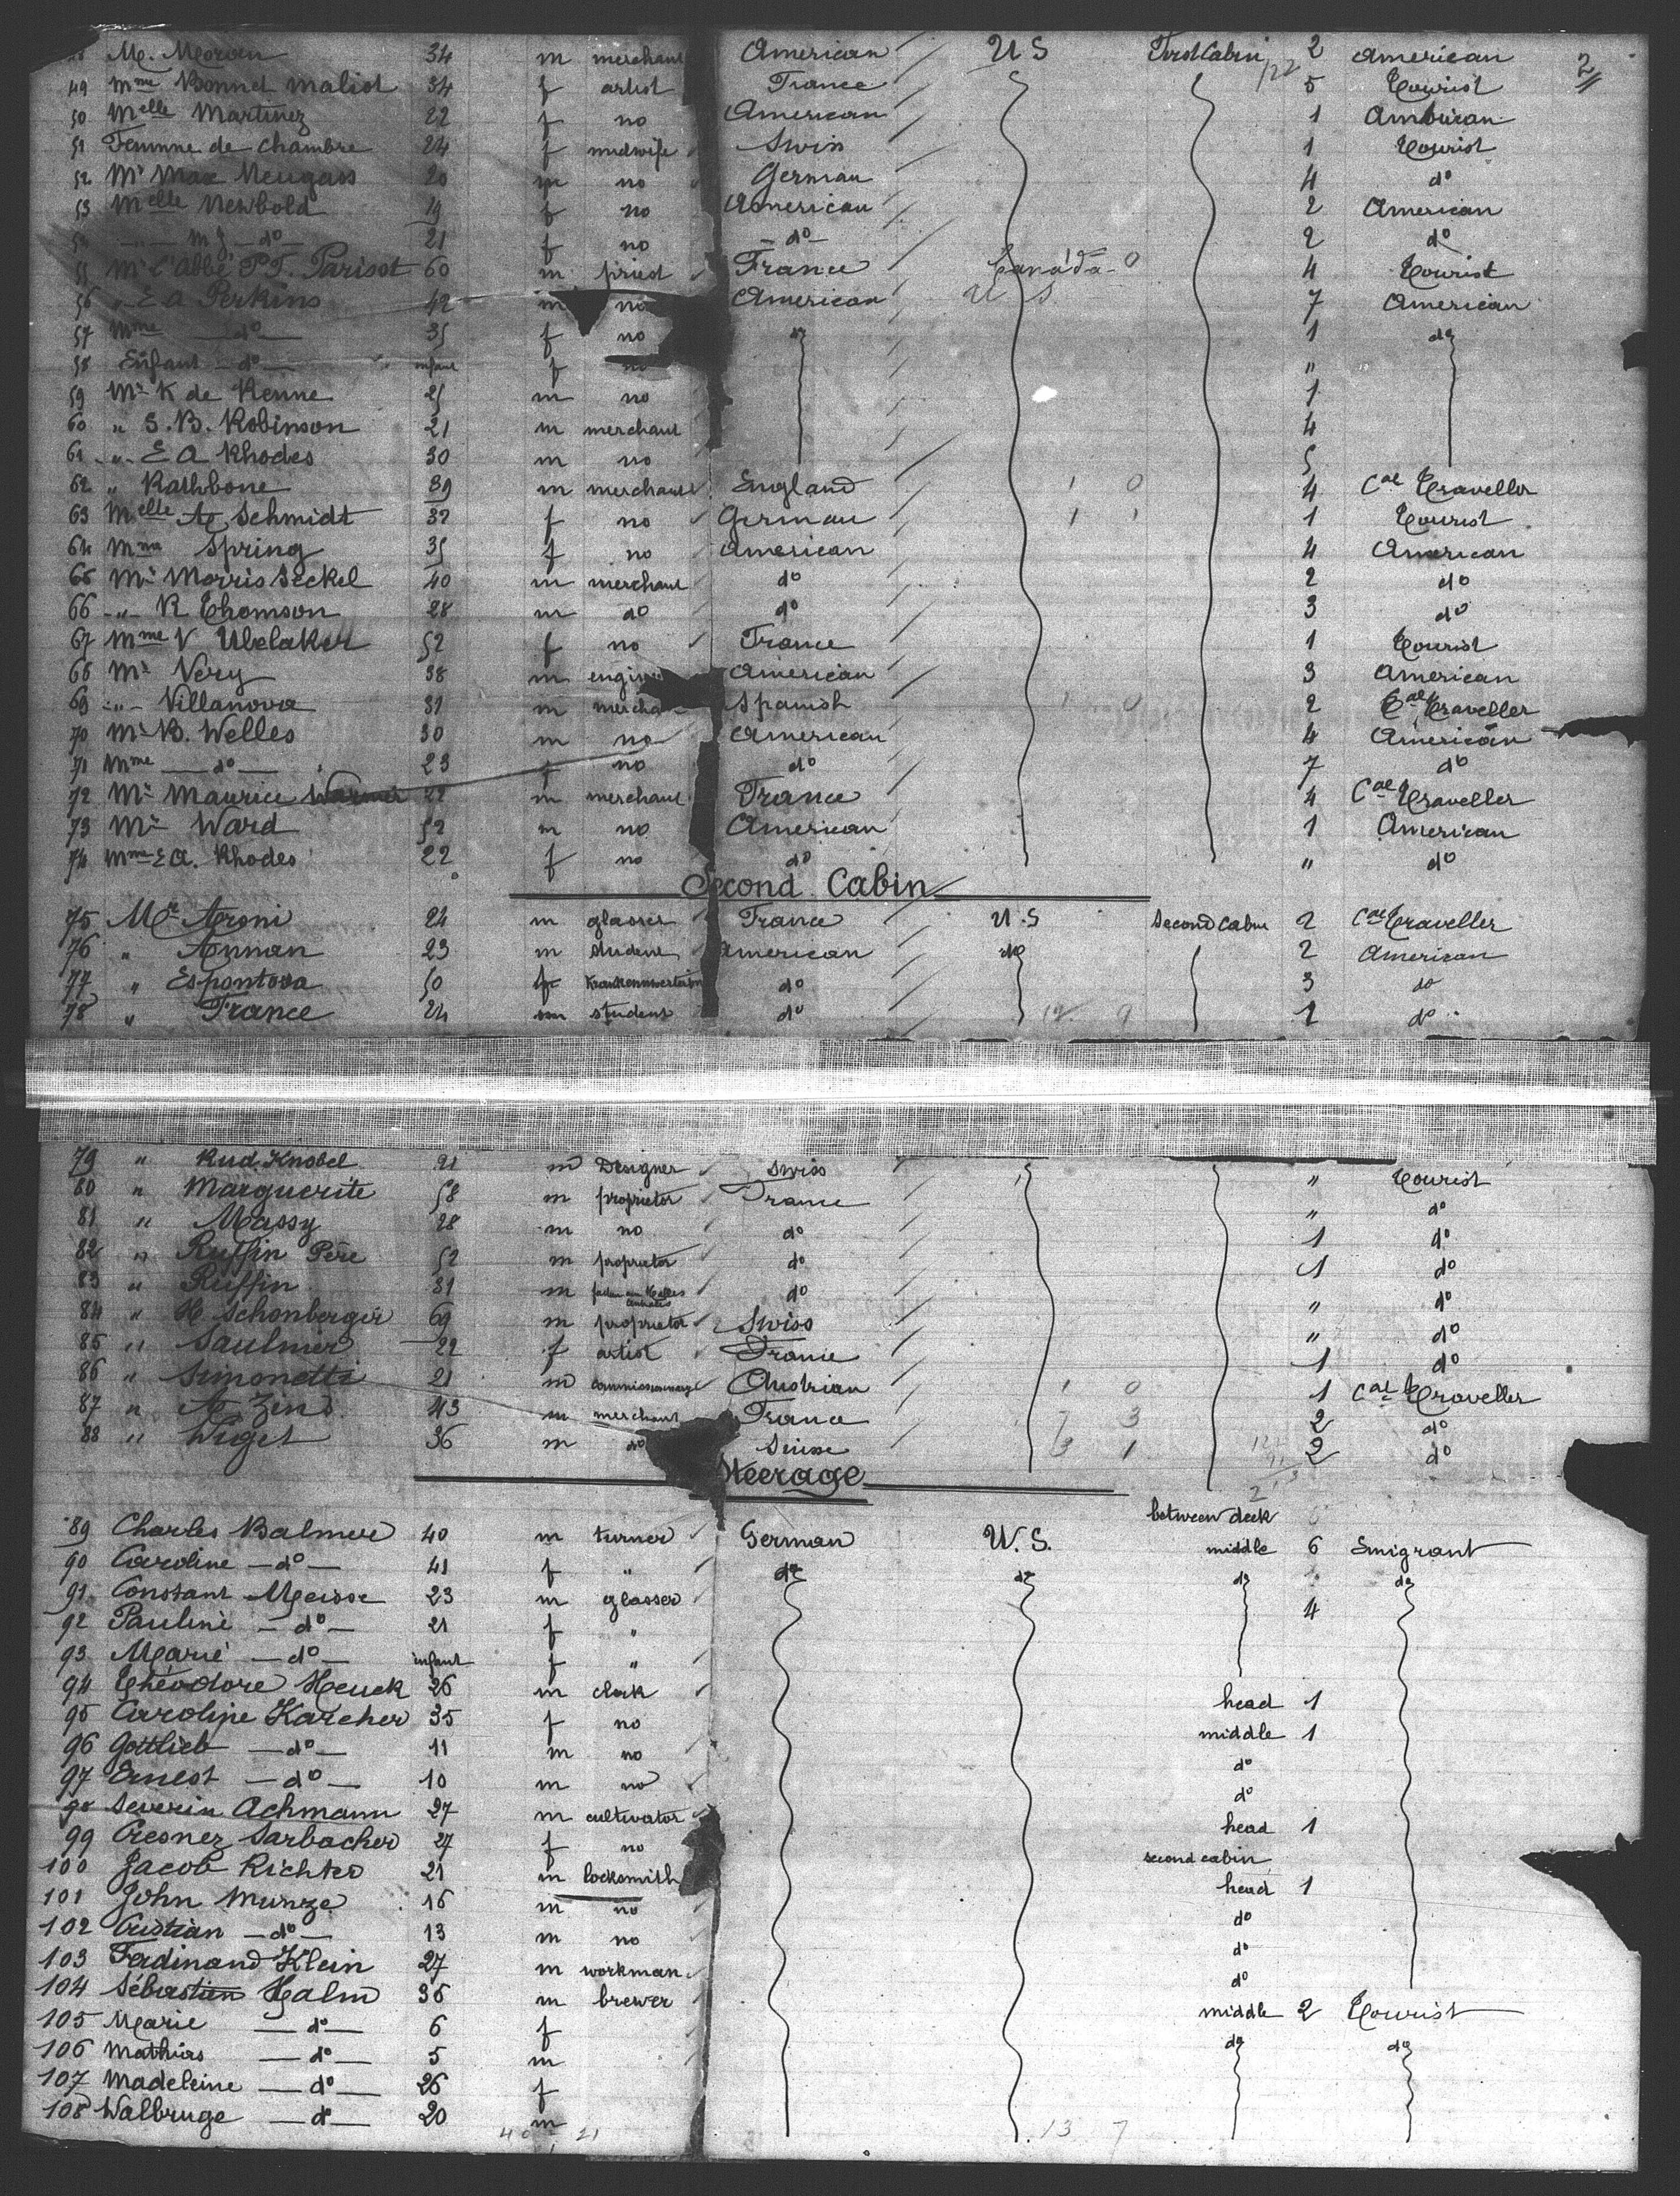 M. Moran 34 m merchant American U S First Cabin 2 American 2
49 Mme Bonnet Maliot 34 f artist France 5 Tourist
50 Melle Martinez 22 f no American 1 American
51 Femme de chambre 24 f midwife Swiss 1 Tourist
52 Mr Max Neugass 20 m no German 4 do
53 Melle Newbold 19 f no American 2 American
M J do 21 f no do 2 do
55 Mr l'abbé P.F. Parisot 60 m priest France Canada 0 4 Tourist
56 " E A Perkins 42 m no American U S 7 American
57 Mme do 35 f no do 1 do
58 Enfant do infant f no "
59 Mr K de Renne 25 m no 1
60 " S. B. Robinson 21 m merchant 4
61 " E A Rhodes 30 m no 5
62 " Rathbone 39 m merchant England 1 0 4 Cal Traveller
63 Melle A Schmidt 32 f no German 1 1 1 Tourist
64 Mme Spring 35 f no American 4 American
65 Mr Morris Seckel 40 m merchant do 2 do
66 " R Thomson 28 m do do 3 do
67 Mme V Ubelaker 52 f no France 1 Tourist
68 Mr Very 38 m engin American 3 American
69 " Villanova 31 m mercha Spanish 1 0 2 Cal Traveller
70 Mr B. Welles 30 m no American 4 American
71 Mme do 23 f no do 7 do
72 Mr Maurice Warmer 22 m merchant France 4 Cal Traveller
73 Mr Ward 52 m no American 1 American
74 Mme E A. Rhodes 22 f no do " do
Second Cabin
75 Mr Aroni 24 m glasser France U.S Second Cabin 2 Cal Traveller
76 " Annan 23 m student American do 2 American
77 " Espontosa 50 f do 3 do
78 " France 24 m student do 12 9 1 do
79 " Rud. Knobel 21 m Designer Swiss " Tourist
80 " Marguerite 58 m proprietor France " do
81 " Massy 28 m no do 1 do
82 " Ruffin Père 52 m proprietor do 1 do
83 " Ruffin 31 m do " do
84 " H Schonberger 69 m proprietor Swiss " do
85 " Saulnier 22 f artist France 1 do
86 " Simonetti 21 m Austrian 1 0 1 Cal Traveller
87 " A Zind 43 m merchant France 7 3 2 do
88 " Wiget 36 m do Suisse 3 1 2 do
Steerage
between deck
89 Charles Balmer 40 m turner German U.S. middle 6 Emigrant
90 Caroline do 41 f " do do do do
91 Constant Meisse 23 m glasser 4
92 Pauline do 21 f "
93 Marie do infant f "
94 Théodore Heuck 26 m clerk head 1
95 Caroline Karcher 35 f no middle 1
96 Gottlieb do 11 m no do
97 Ernest do 10 m no do
98 Severin Achmann 27 m cultivator head 1
99 Cresnez Sarbacher 27 f no second cabin
100 Jacob Richter 21 m locksmith head 1
101 John Munze 16 m no do
102 Cristian do 13 m no do
103 Ferdinand Klein 27 m workman do
104 Sébastien Halm 36 m brewer middle 2 Tourist
105 Marie do 6 f do do
106 Mathias do 5 m
107 Madeleine do 26 f
108 Walbruge do 20 m
40 21 13 7